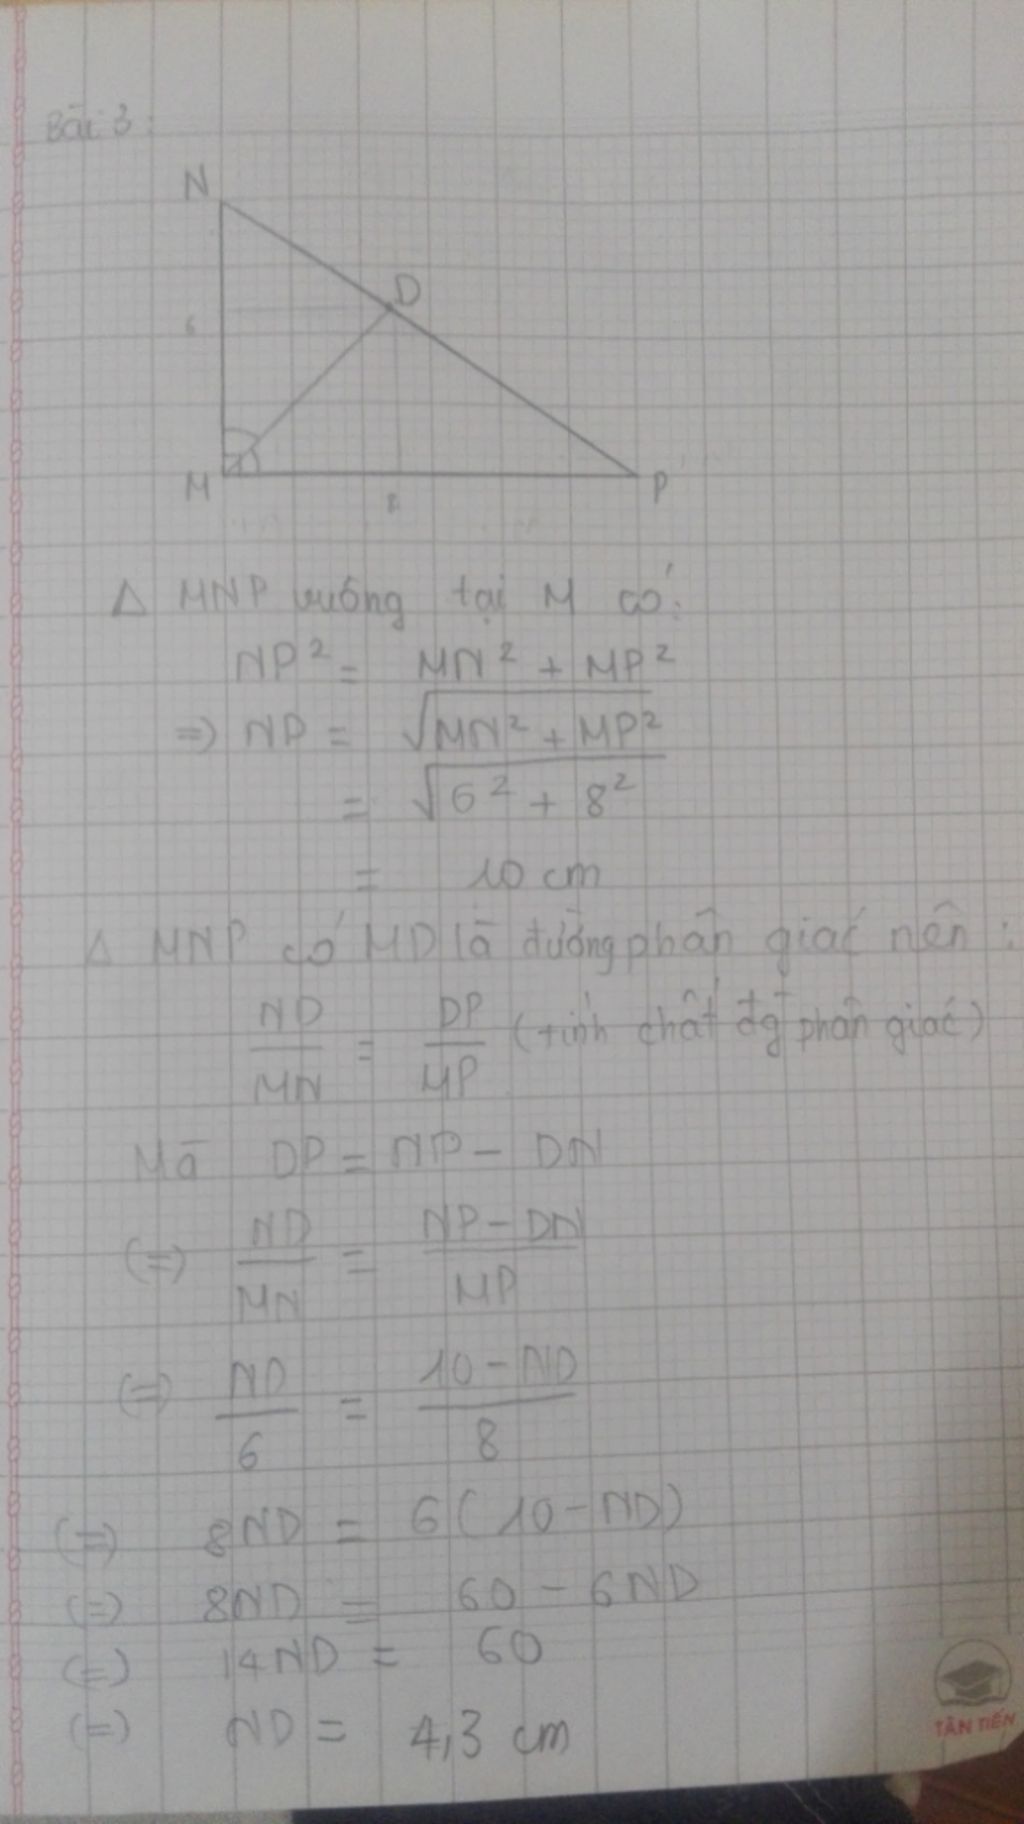 Bài 3:
N
D
6
M
P
8
Δ MNP vuông tại M có:
NP² = MN² + MP²
=> NP = √MN² + MP²
= √6² + 8²
= 10 cm
Δ MNP có MD là đường phân giác nên:
ND/MN = DP/MP (tính chất đg phân giác)
Mà DP = NP - DN
(=) ND/MN = NP - DN/MP
(=) ND/6 = 10 - ND/8
(=) 8ND = 6(10 - ND)
(=) 8ND = 60 - 6ND
(=) 14ND = 60
(=) ND = 4,3 cm
TÂN TIẾN